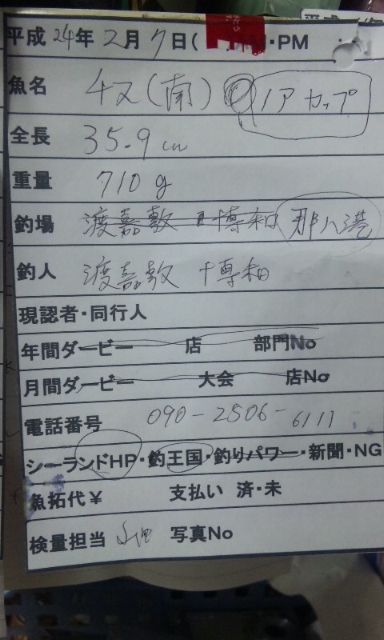 平成24年2月7日( ・PM
魚名 チヌ(南) ノアカップ
全長 35.9cm
重量 710g
釣場 渡嘉敷 十博和 那八港
釣人 渡嘉敷 十博和
現認者・同行人
年間ダービー 店 部門No
月間ダービー 大会 店No
電話番号 090-2506-6111
シーランドHP・釣王国・釣りパワー・新聞・NG
魚拓代¥ 支払い 済・未
検量担当 写真No